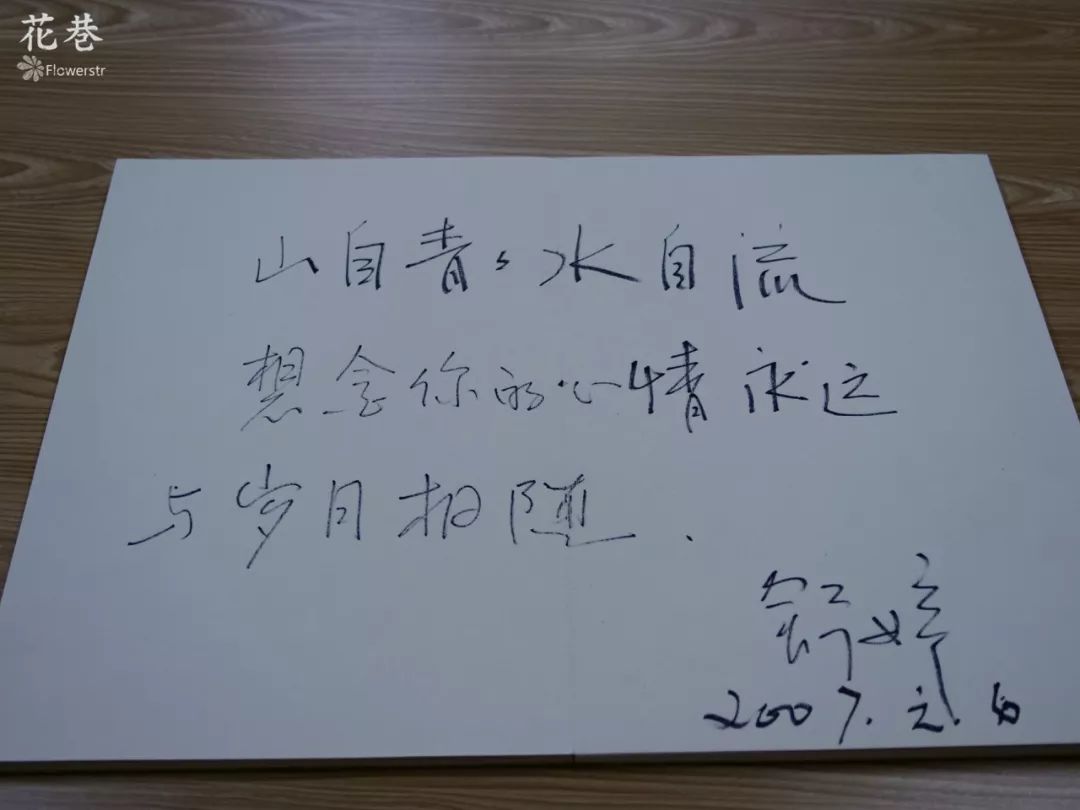 花巷
Flowerstr
山自青,水自流
想念你的心情永远
与岁月相随.
舒婷
2007.元.